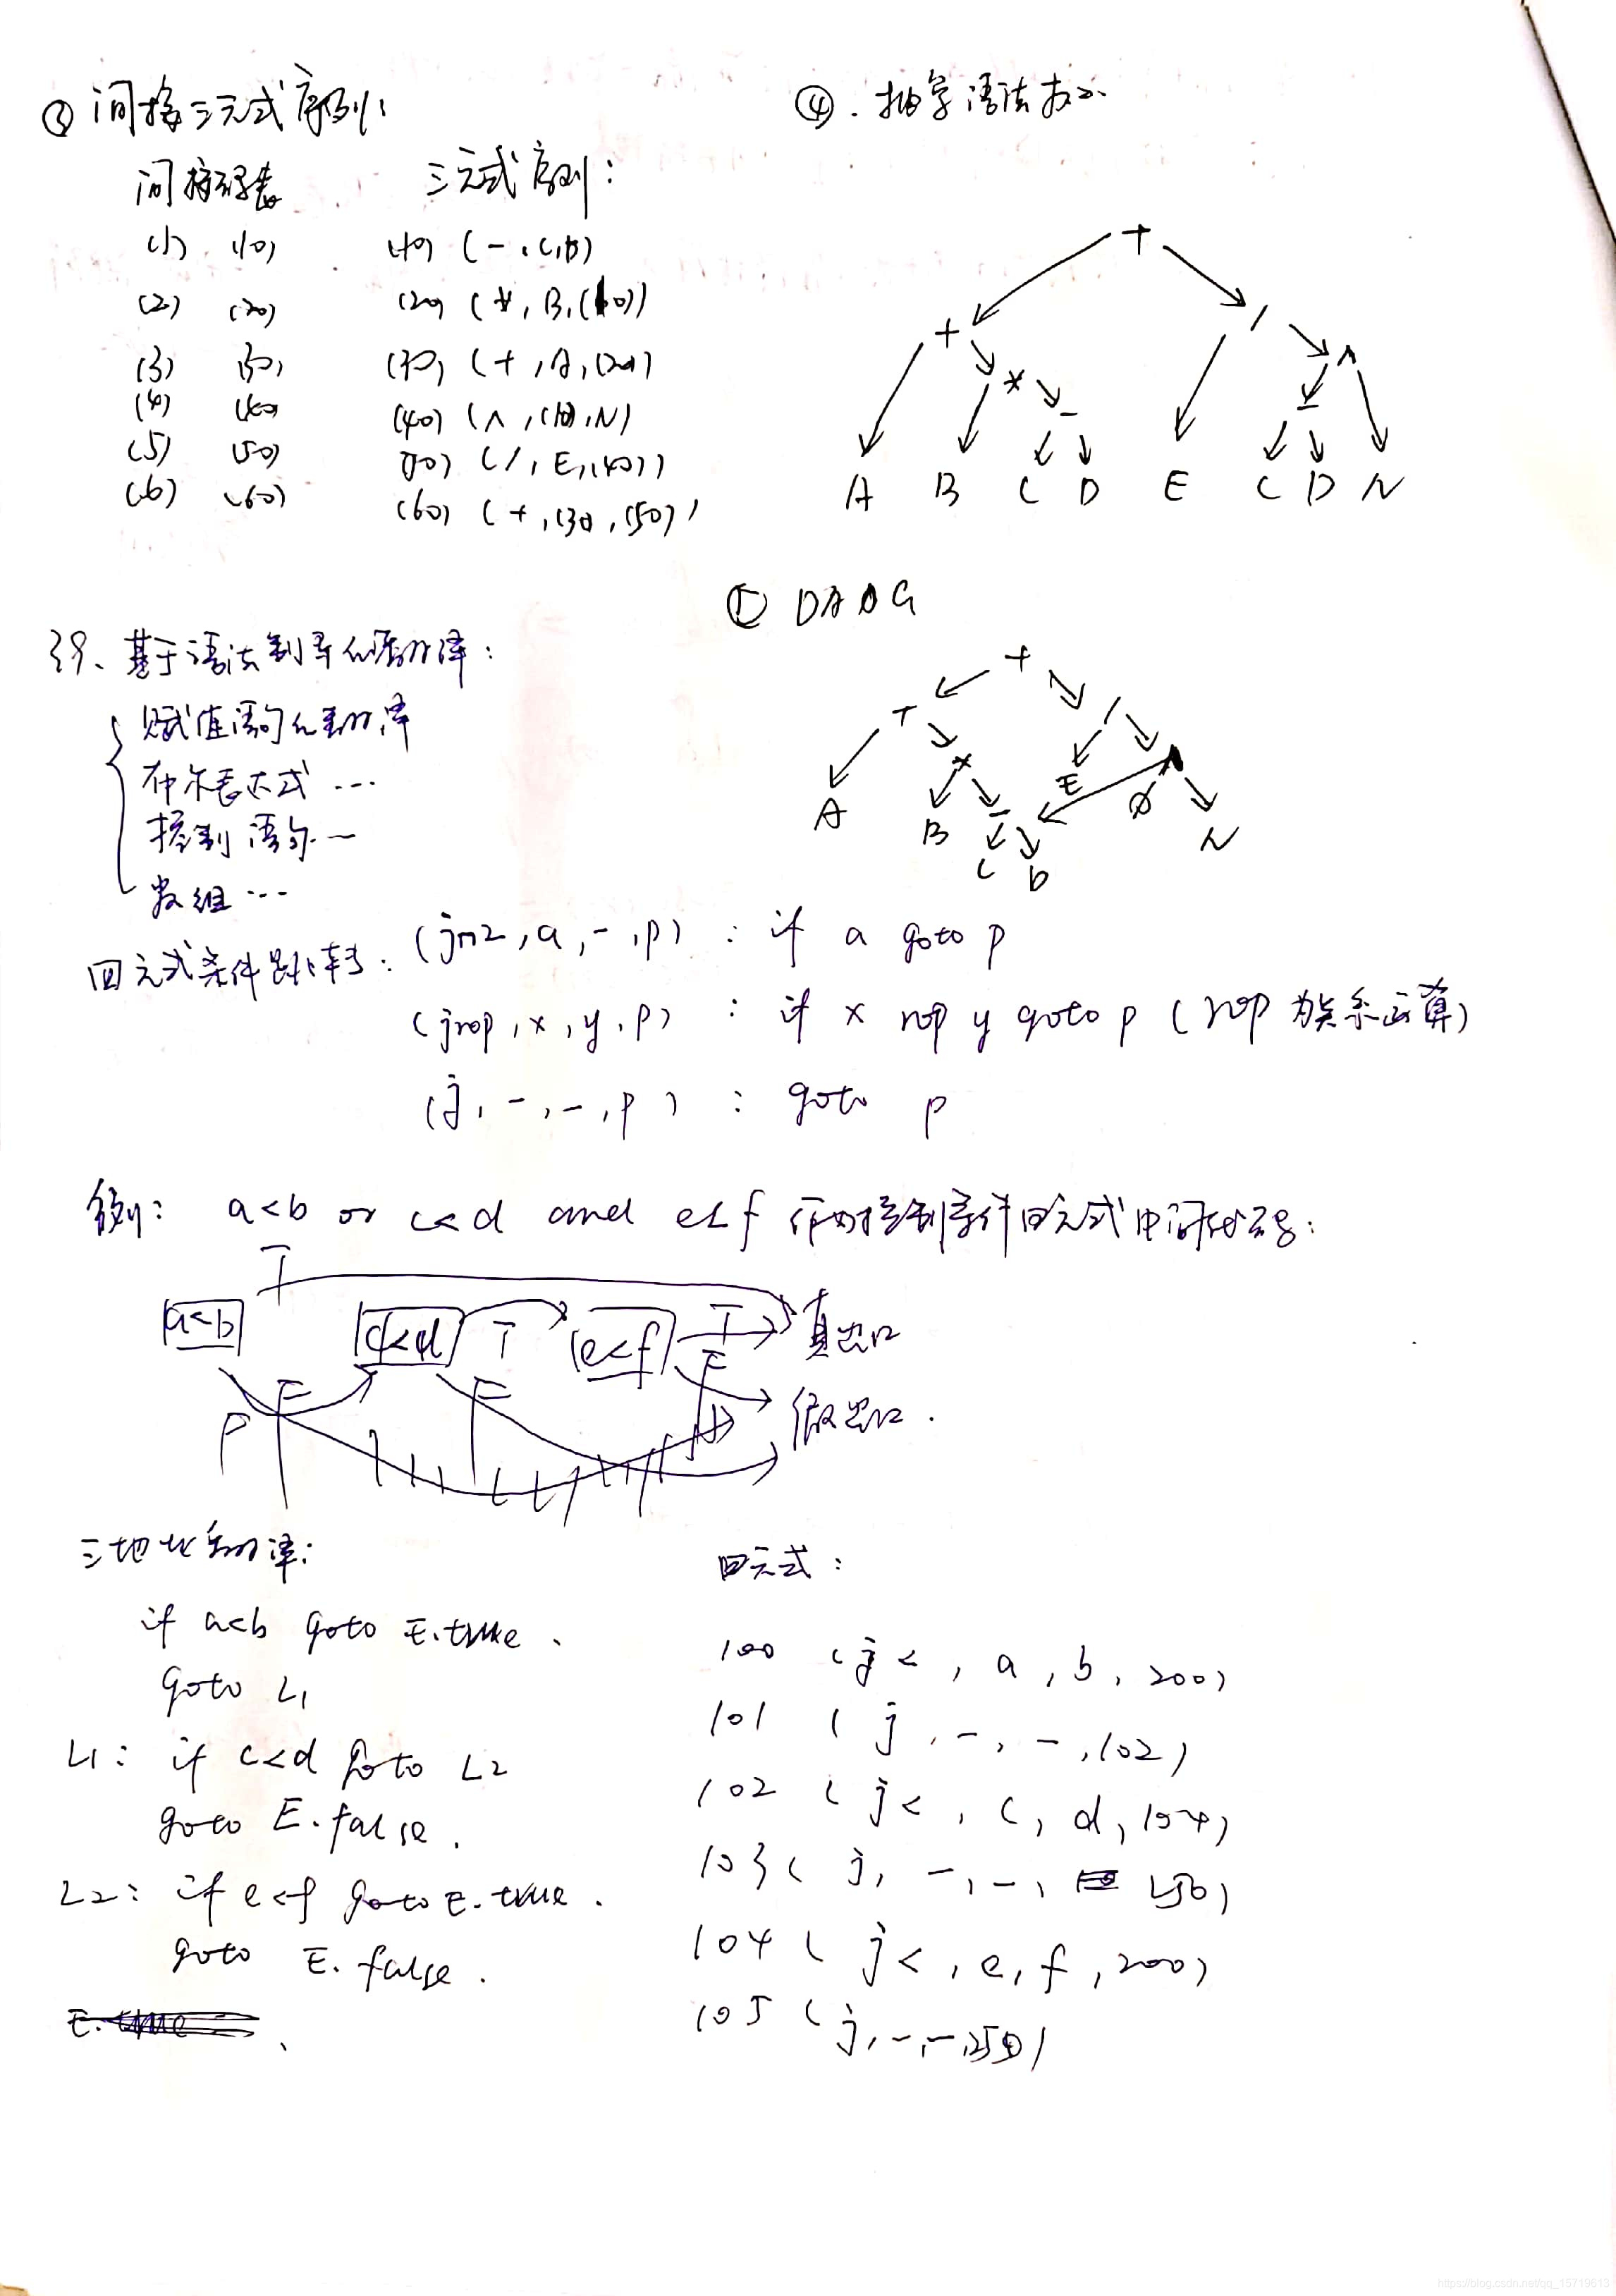 ③ 间接三元式序列:
间接码表 三元式序列:
(1) (10) (10) (-, C, D)
(2) (20) (20) (*, B, (10))
(3) (30) (30) (+, A, (20))
(4) (40) (40) (∧, (10), N)
(5) (50) (50) (/, E, (40))
(6) (60) (60) (+, (30), (50))
④. 抽象语法树
+
+ /
* ∧
- -
A B C D E C D N
⑤ DAG
+
+ /
*
E
A B - N
C D
39、基于语法制导的翻译:
赋值语句的翻译
布尔表达式 ...
控制语句 ...
数组 ...
四元式条件跳转: (jnz, a, -, p) : if a goto p
(jrop, x, y, p) : if x rop y goto p (rop 为关系运算)
(j, -, -, p) : goto p
例: a<b or c<d and e<f 作为控制条件四元式中间代码:
T
a<b c<d T e<f T 真出口
F F F 假出口.
三地址翻译:
if a<b goto E.true.
goto L1
L1: if c<d goto L2
goto E.false.
L2: if e<f goto E.true.
goto E.false.
四元式:
100 (j<, a, b, 200)
101 (j, -, -, 102)
102 (j<, c, d, 104)
103 (j, -, -, 250)
104 (j<, e, f, 200)
105 (j, -, -, 250)
https://blog.csdn.net/qq_15719613